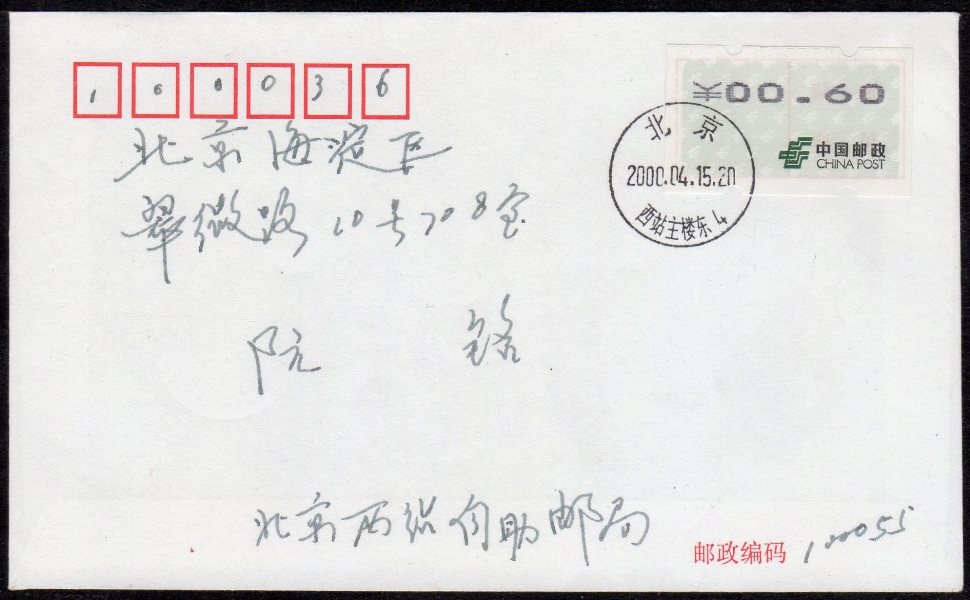 100036
¥00.60
中国邮政
CHINA POST
北京
2000.04.15.20
西站主楼东4
北京海淀区
翠微路10号708室
阮 铭
北京西站自助邮局
邮政编码 100055